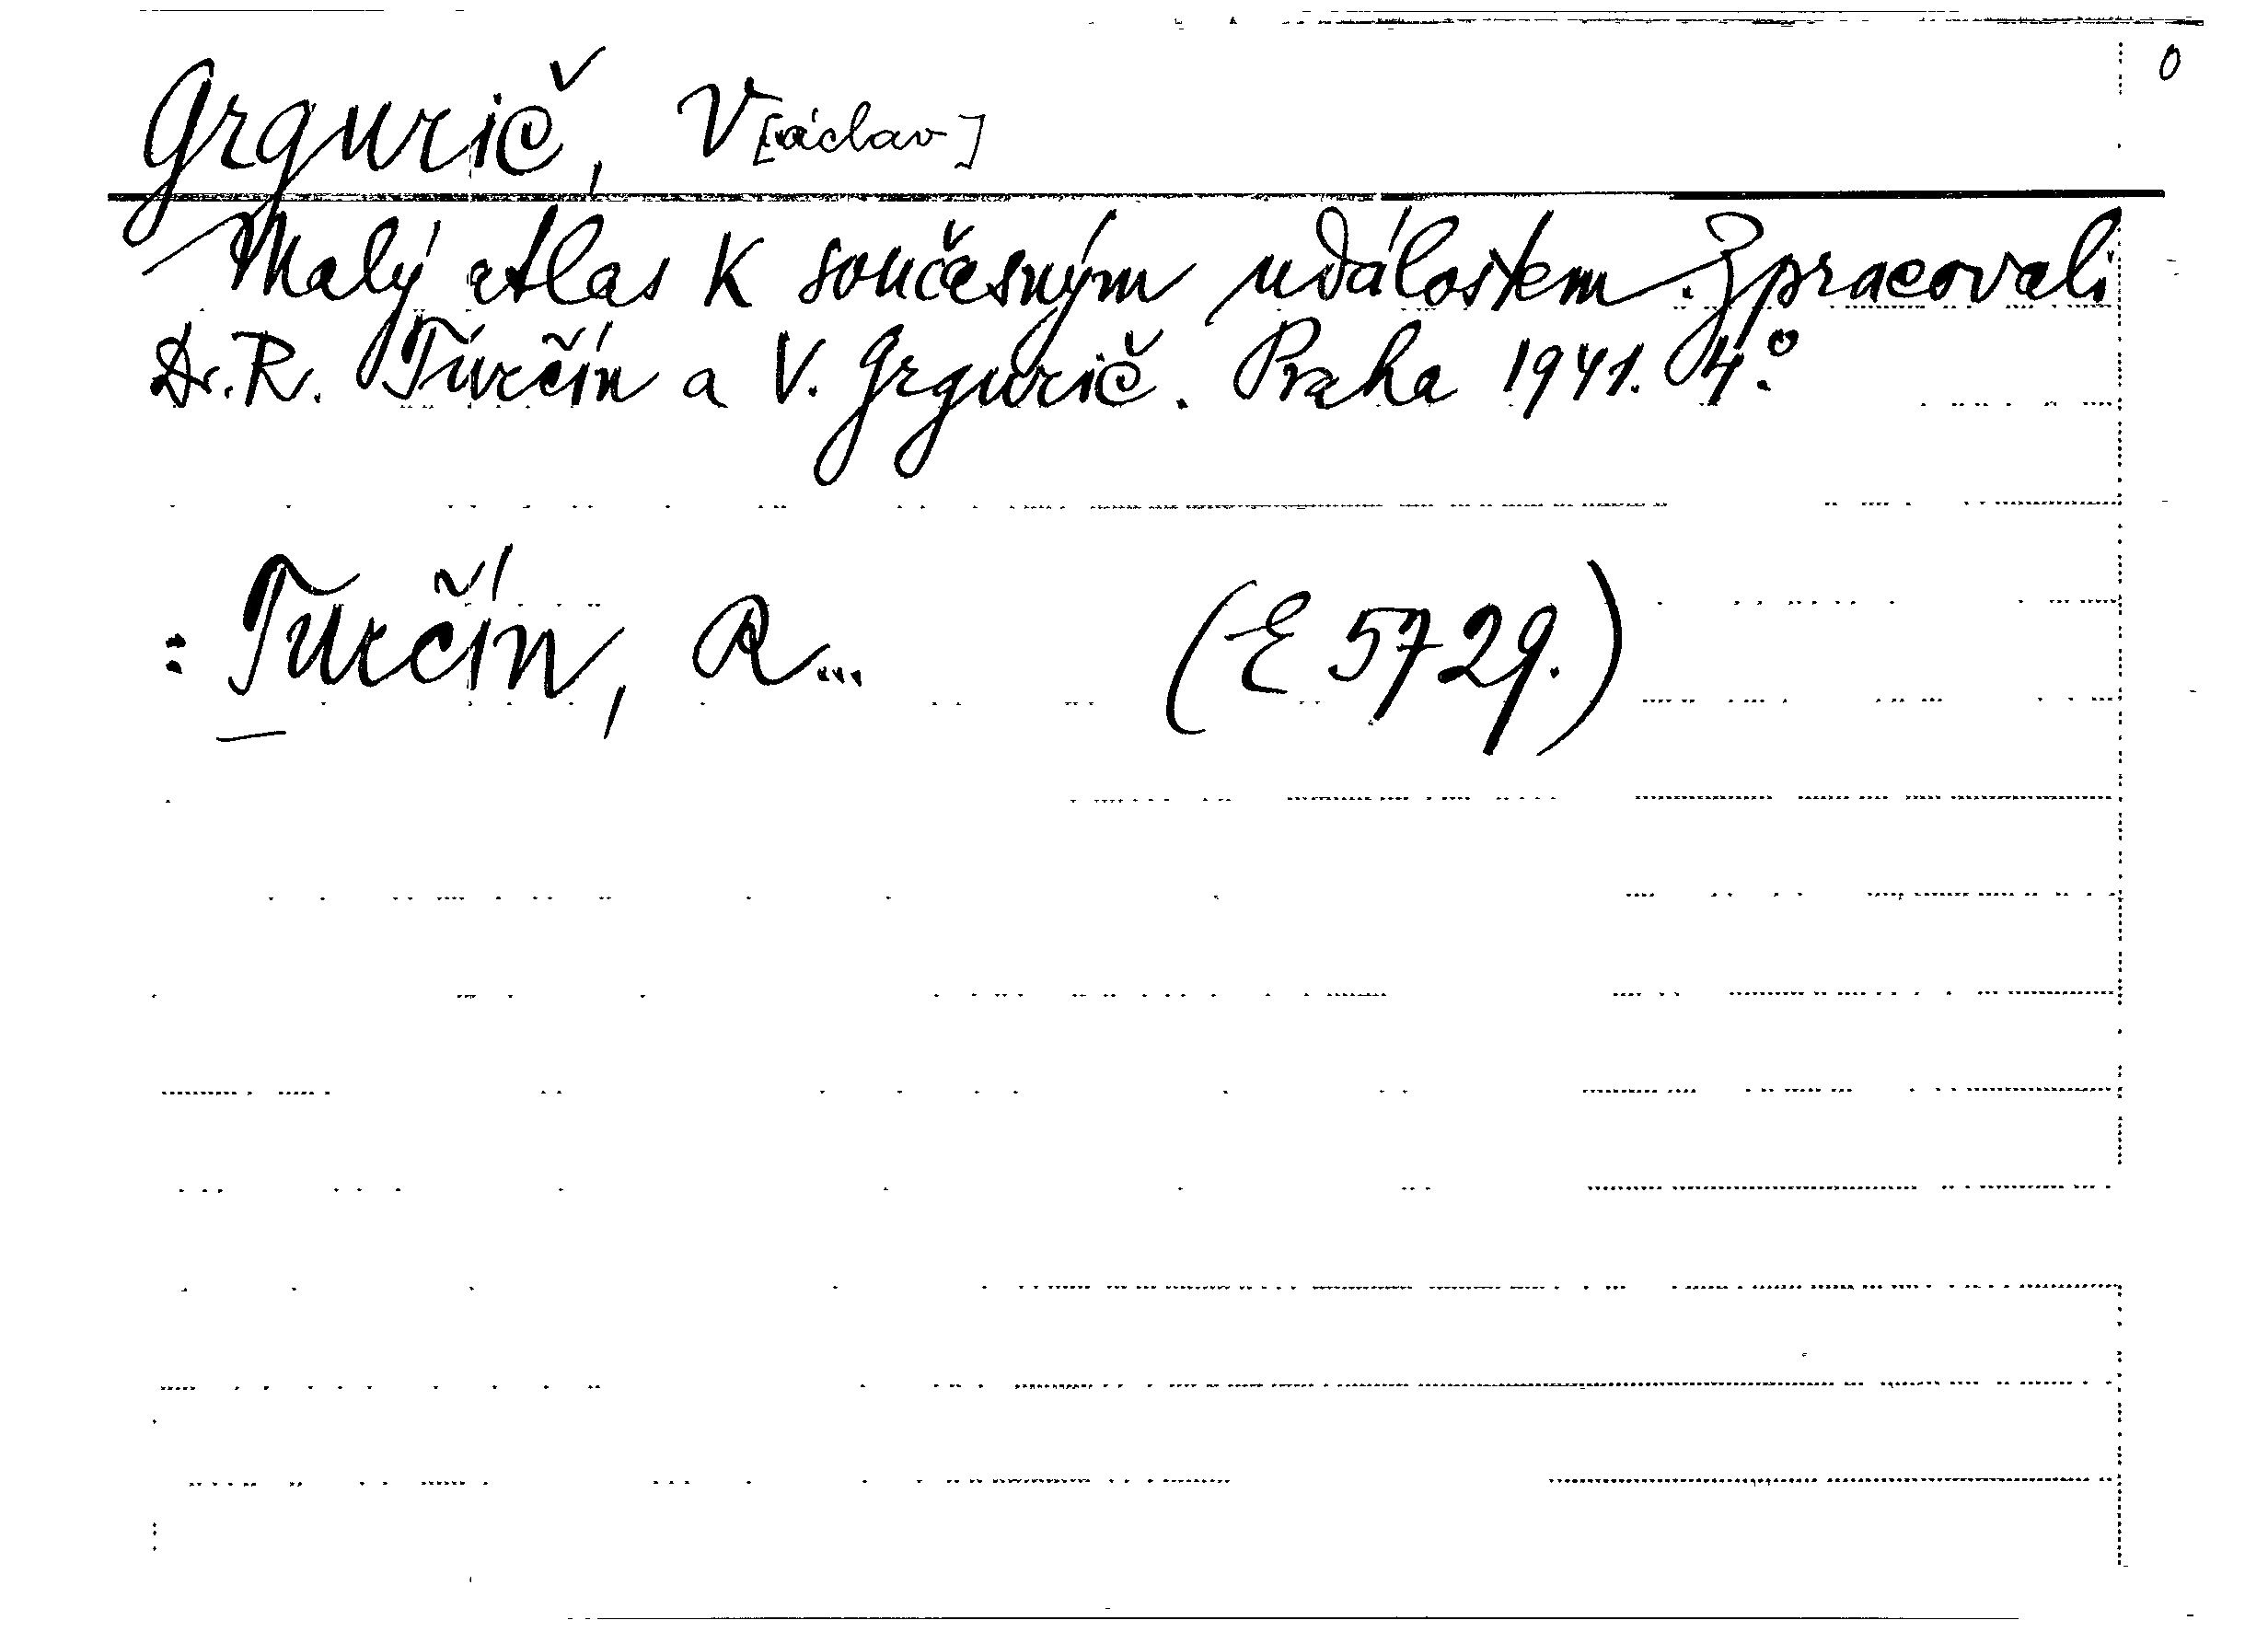 0
Grgurič, V[áclav]
Malý atlas k současným událostem. Zpracovali
Dr. R. Turčín a V. Grgurič. Praha 1941. 4°.
: Turčín, R... (E 5729.)